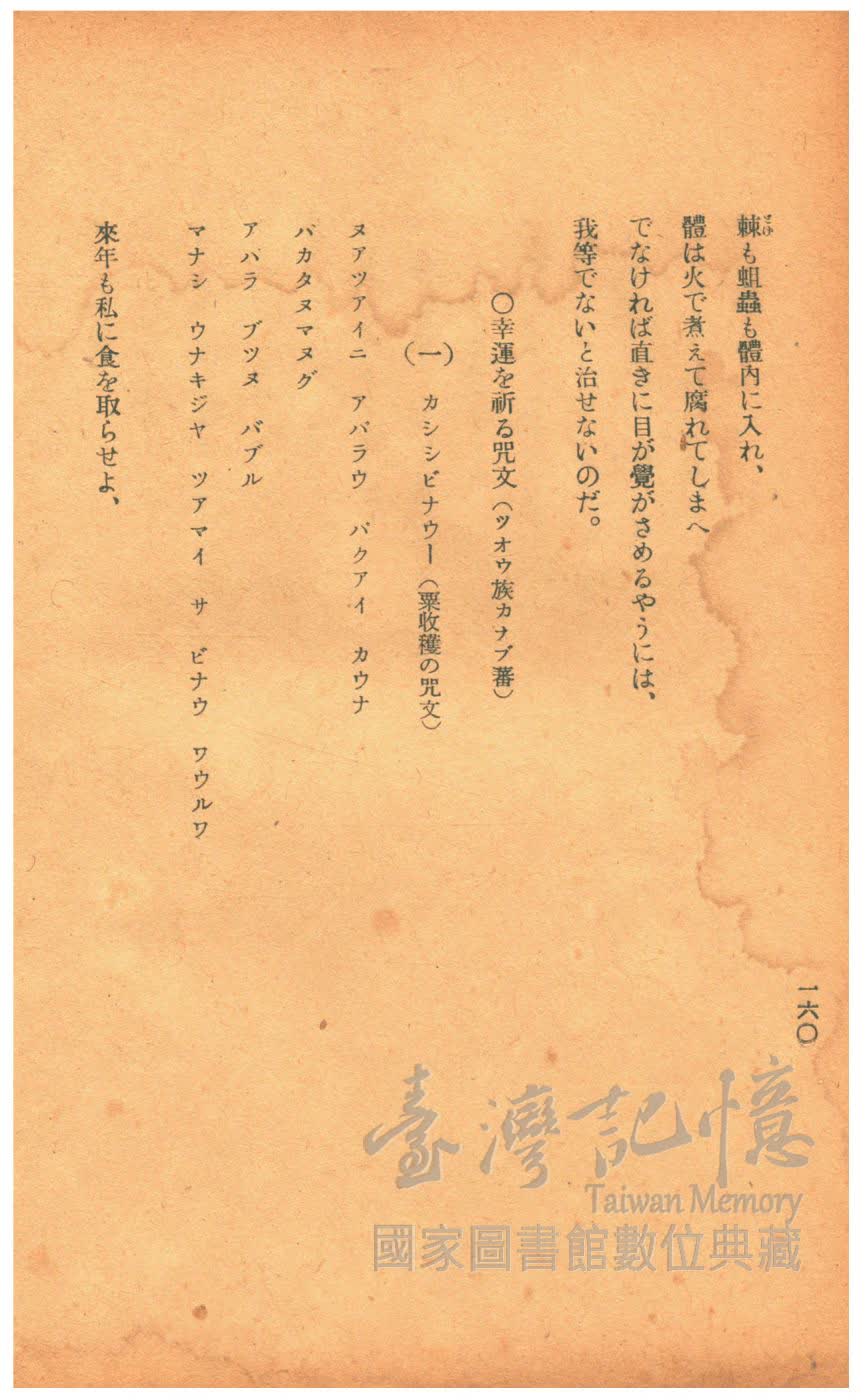 棘も蛆蟲も體內に入れ、
體は火で煮えて腐れてしまへ
でなければ直きに目が覺がさめるやうには、
我等でないと治せないのだ。
〇幸運を祈る咒文(ツオウ族カナブ蕃)
(一) カシシビナウー(粟收穫の咒文)
ヌアツアイニ アバラウ パクアイ カウナ
バカタヌマヌグ
アハラ ブツヌ バブル
マナシ ウナキジヤ ツアマイ サ ビナウ ワウルワ
來年も私に食を取らせよ、
一六〇
臺灣記憶
Taiwan Memory
國家圖書館數位典藏